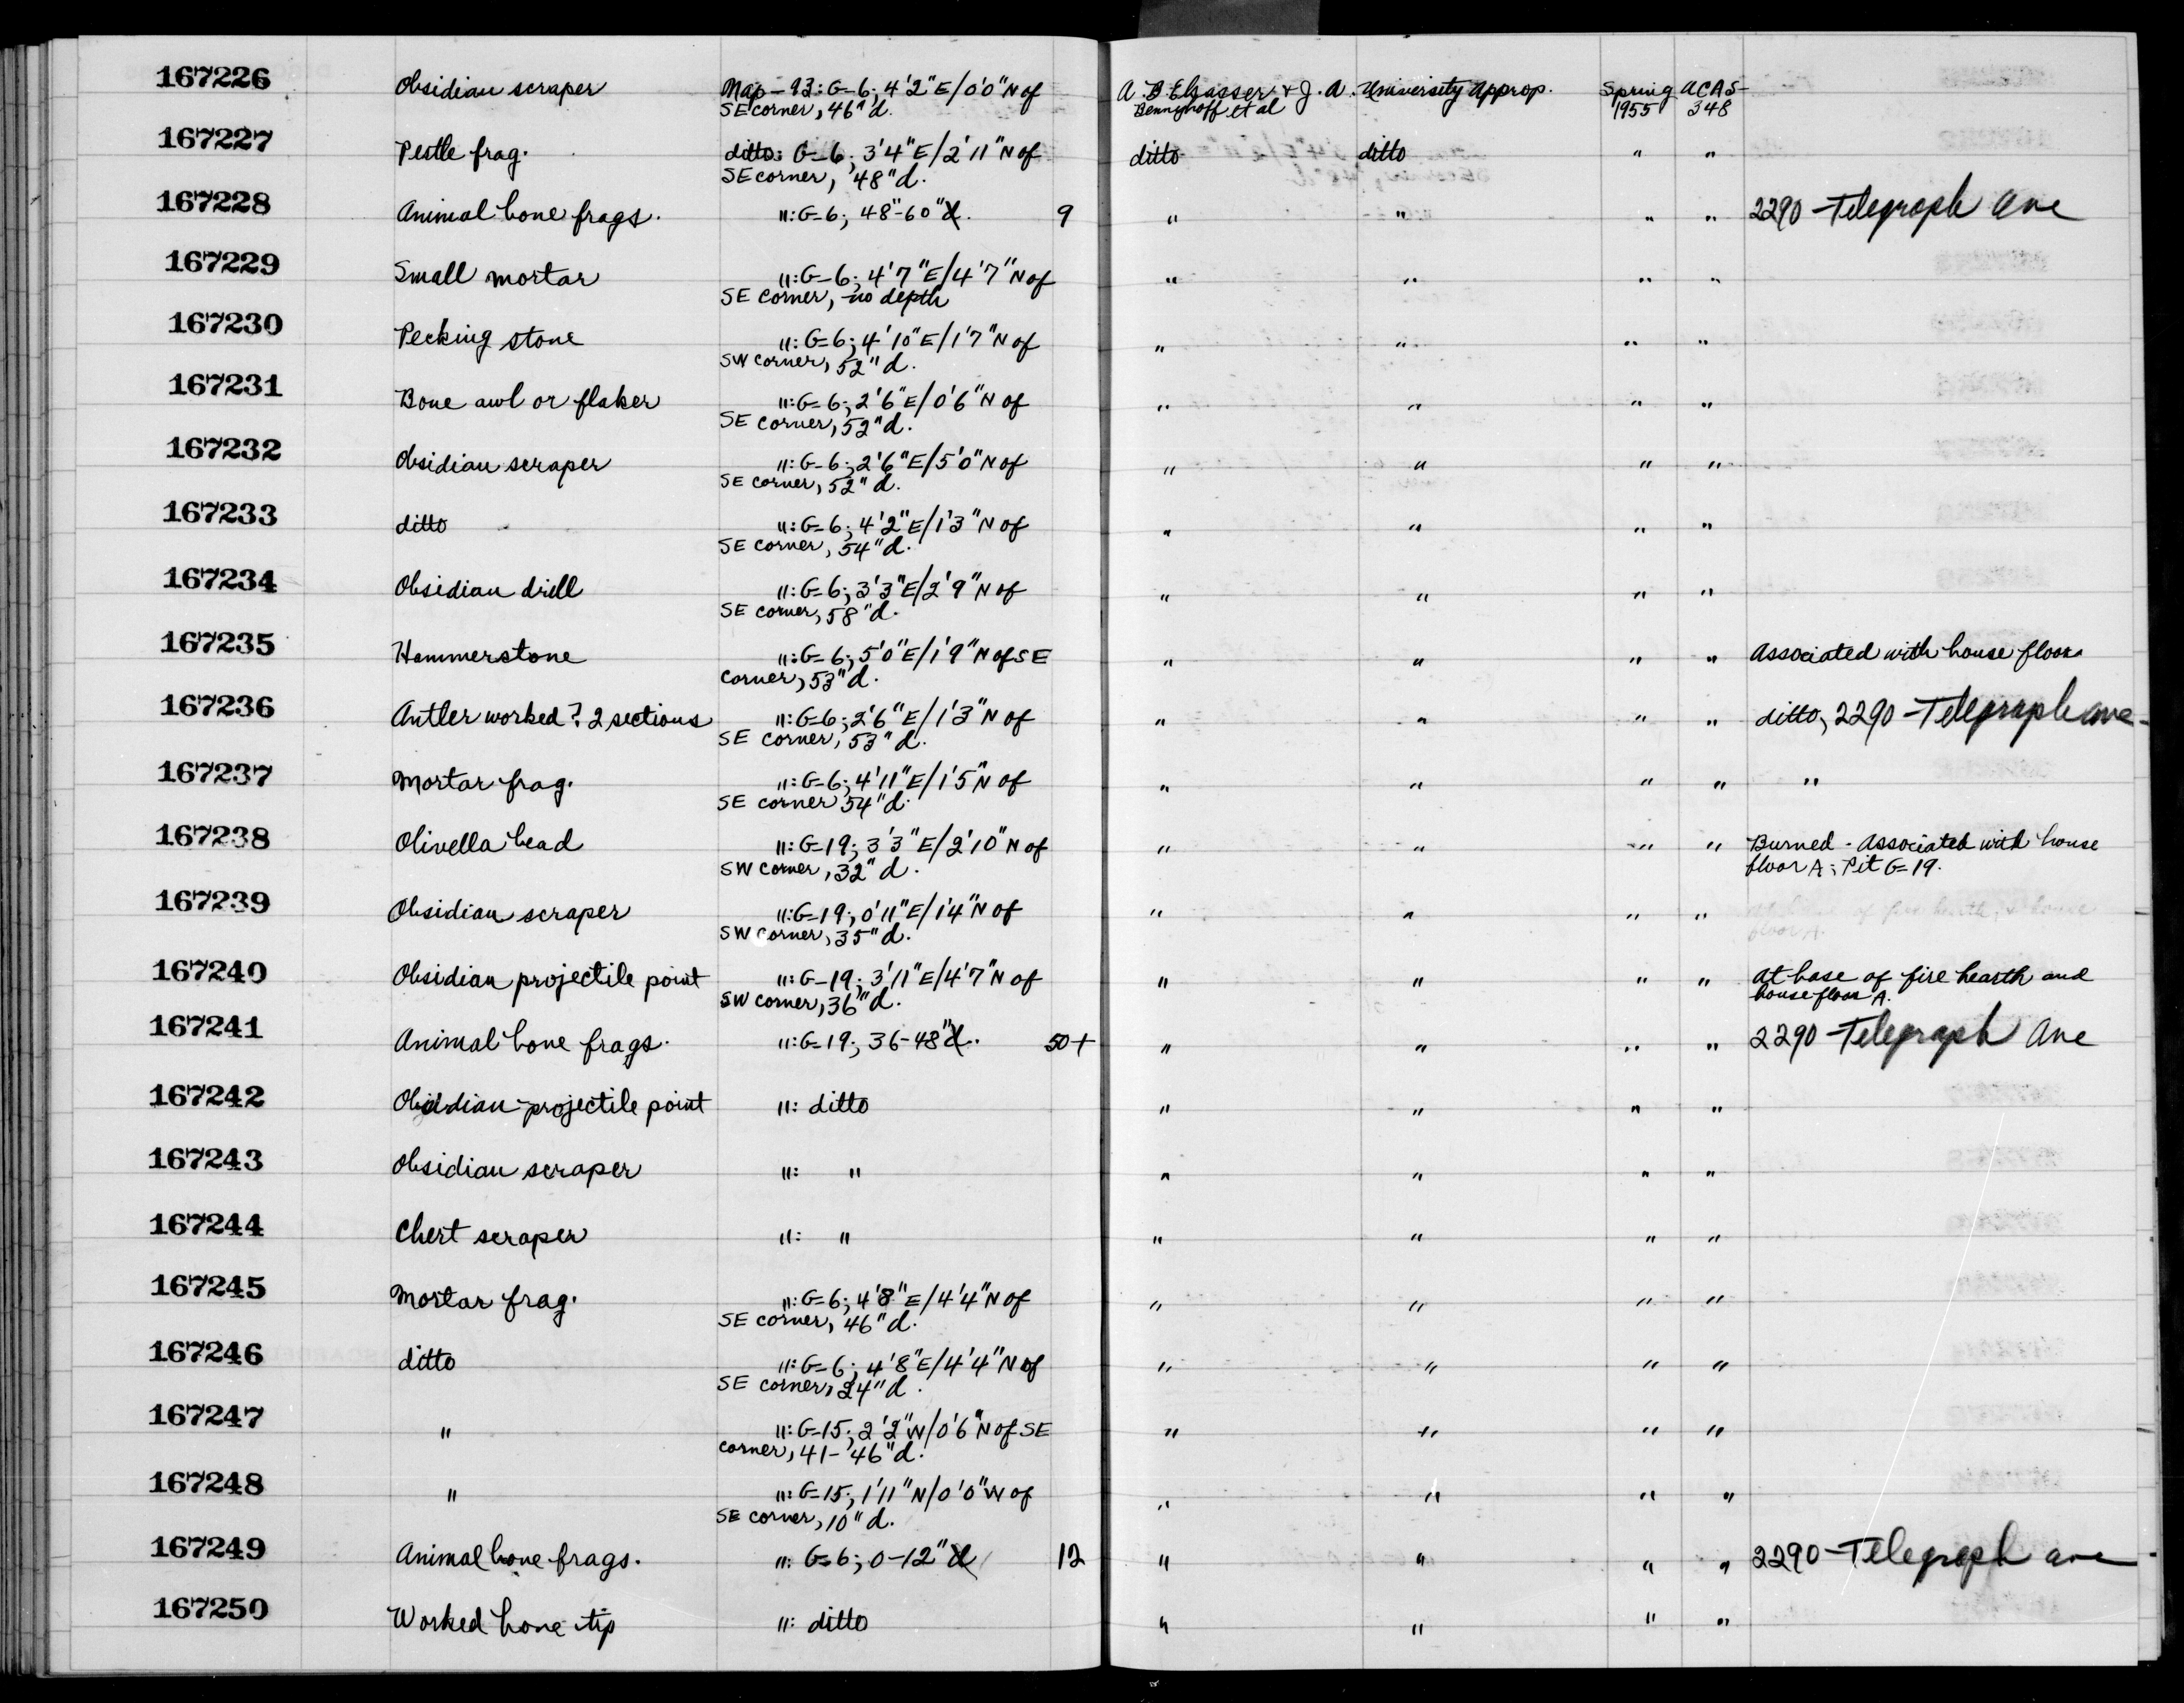 167226 Obsidian scraper Map-93: G-6; 4'2"E/0'0"N of A. B. Elsasser & J. A. University Approp. Spring ACAS-
SE corner, 46"d. Bennyhoff et al 1955 348
167227 Pestle frag. ditto: G-6; 3'4"E/2'11"N of ditto ditto " "
SE corner, 48"d.
167228 Animal bone frags. ": G-6; 48"-60"d. 9 " " " " 2290 Telegraph Ave
167229 Small mortar ": G-6; 4'7"E/4'7"N of " " " "
SE corner, no depth
167230 Pecking stone ": G-6; 4'10"E/1'7"N of " " " "
SW corner, 52"d.
167231 Bone awl or flaker ": G-6; 2'6"E/0'6"N of " " " "
SE corner, 52"d.
167232 Obsidian scraper ": G-6; 2'6"E/5'0"N of " " " "
SE corner, 52"d.
167233 ditto ": G-6; 4'2"E/1'3"N of " " " "
SE corner, 54"d.
167234 Obsidian drill ": G-6; 3'3"E/2'9"N of " " " "
SE corner, 58"d.
167235 Hammerstone ": G-6; 5'0"E/1'9"N of SE " " " " Associated with house floor
corner, 53"d.
167236 Antler worked? 2 sections ": G-6; 2'6"E/1'3"N of " " " " ditto, 2290 Telegraph Ave
SE corner, 53"d.
167237 Mortar frag. ": G-6; 4'11"E/1'5"N of " " " " "
SE corner 54"d.
167238 Olivella bead ": G-19; 3'3"E/2'10"N of " " " " Burned - Associated with house
SW corner, 32"d. floor A; Pit G-19.
167239 Obsidian scraper ": G-19; 0'11"E/1'4"N of " " " " of fire hearth, & house
SW corner, 35"d. floor A.
167240 Obsidian projectile point ": G-19; 3'11"E/4'7"N of " " " " At base of fire hearth and
SW corner, 36"d. house floor A.
167241 Animal bone frags. ": G-19; 36-48"d. 50+ " " " " 2290 Telegraph Ave
167242 Obsidian projectile point ": ditto " " " "
167243 Obsidian scraper ": " " " " "
167244 Chert scraper ": " " " " "
167245 Mortar frag. ": G-6; 4'8"E/4'4"N of " " " "
SE corner, 46"d.
167246 ditto ": G-6; 4'8"E/4'4"N of " " " "
SE corner, 24"d.
167247 " ": G-15; 2'2"W/0'6"N of SE " " " "
corner, 41-46"d.
167248 " ": G-15; 1'11"N/0'0"W of " " " "
SE corner, 10"d.
167249 Animal bone frags. ": G-6; 0-12"d 12 " " " " 2290 Telegraph Ave
167250 Worked bone tip ": ditto " " " "